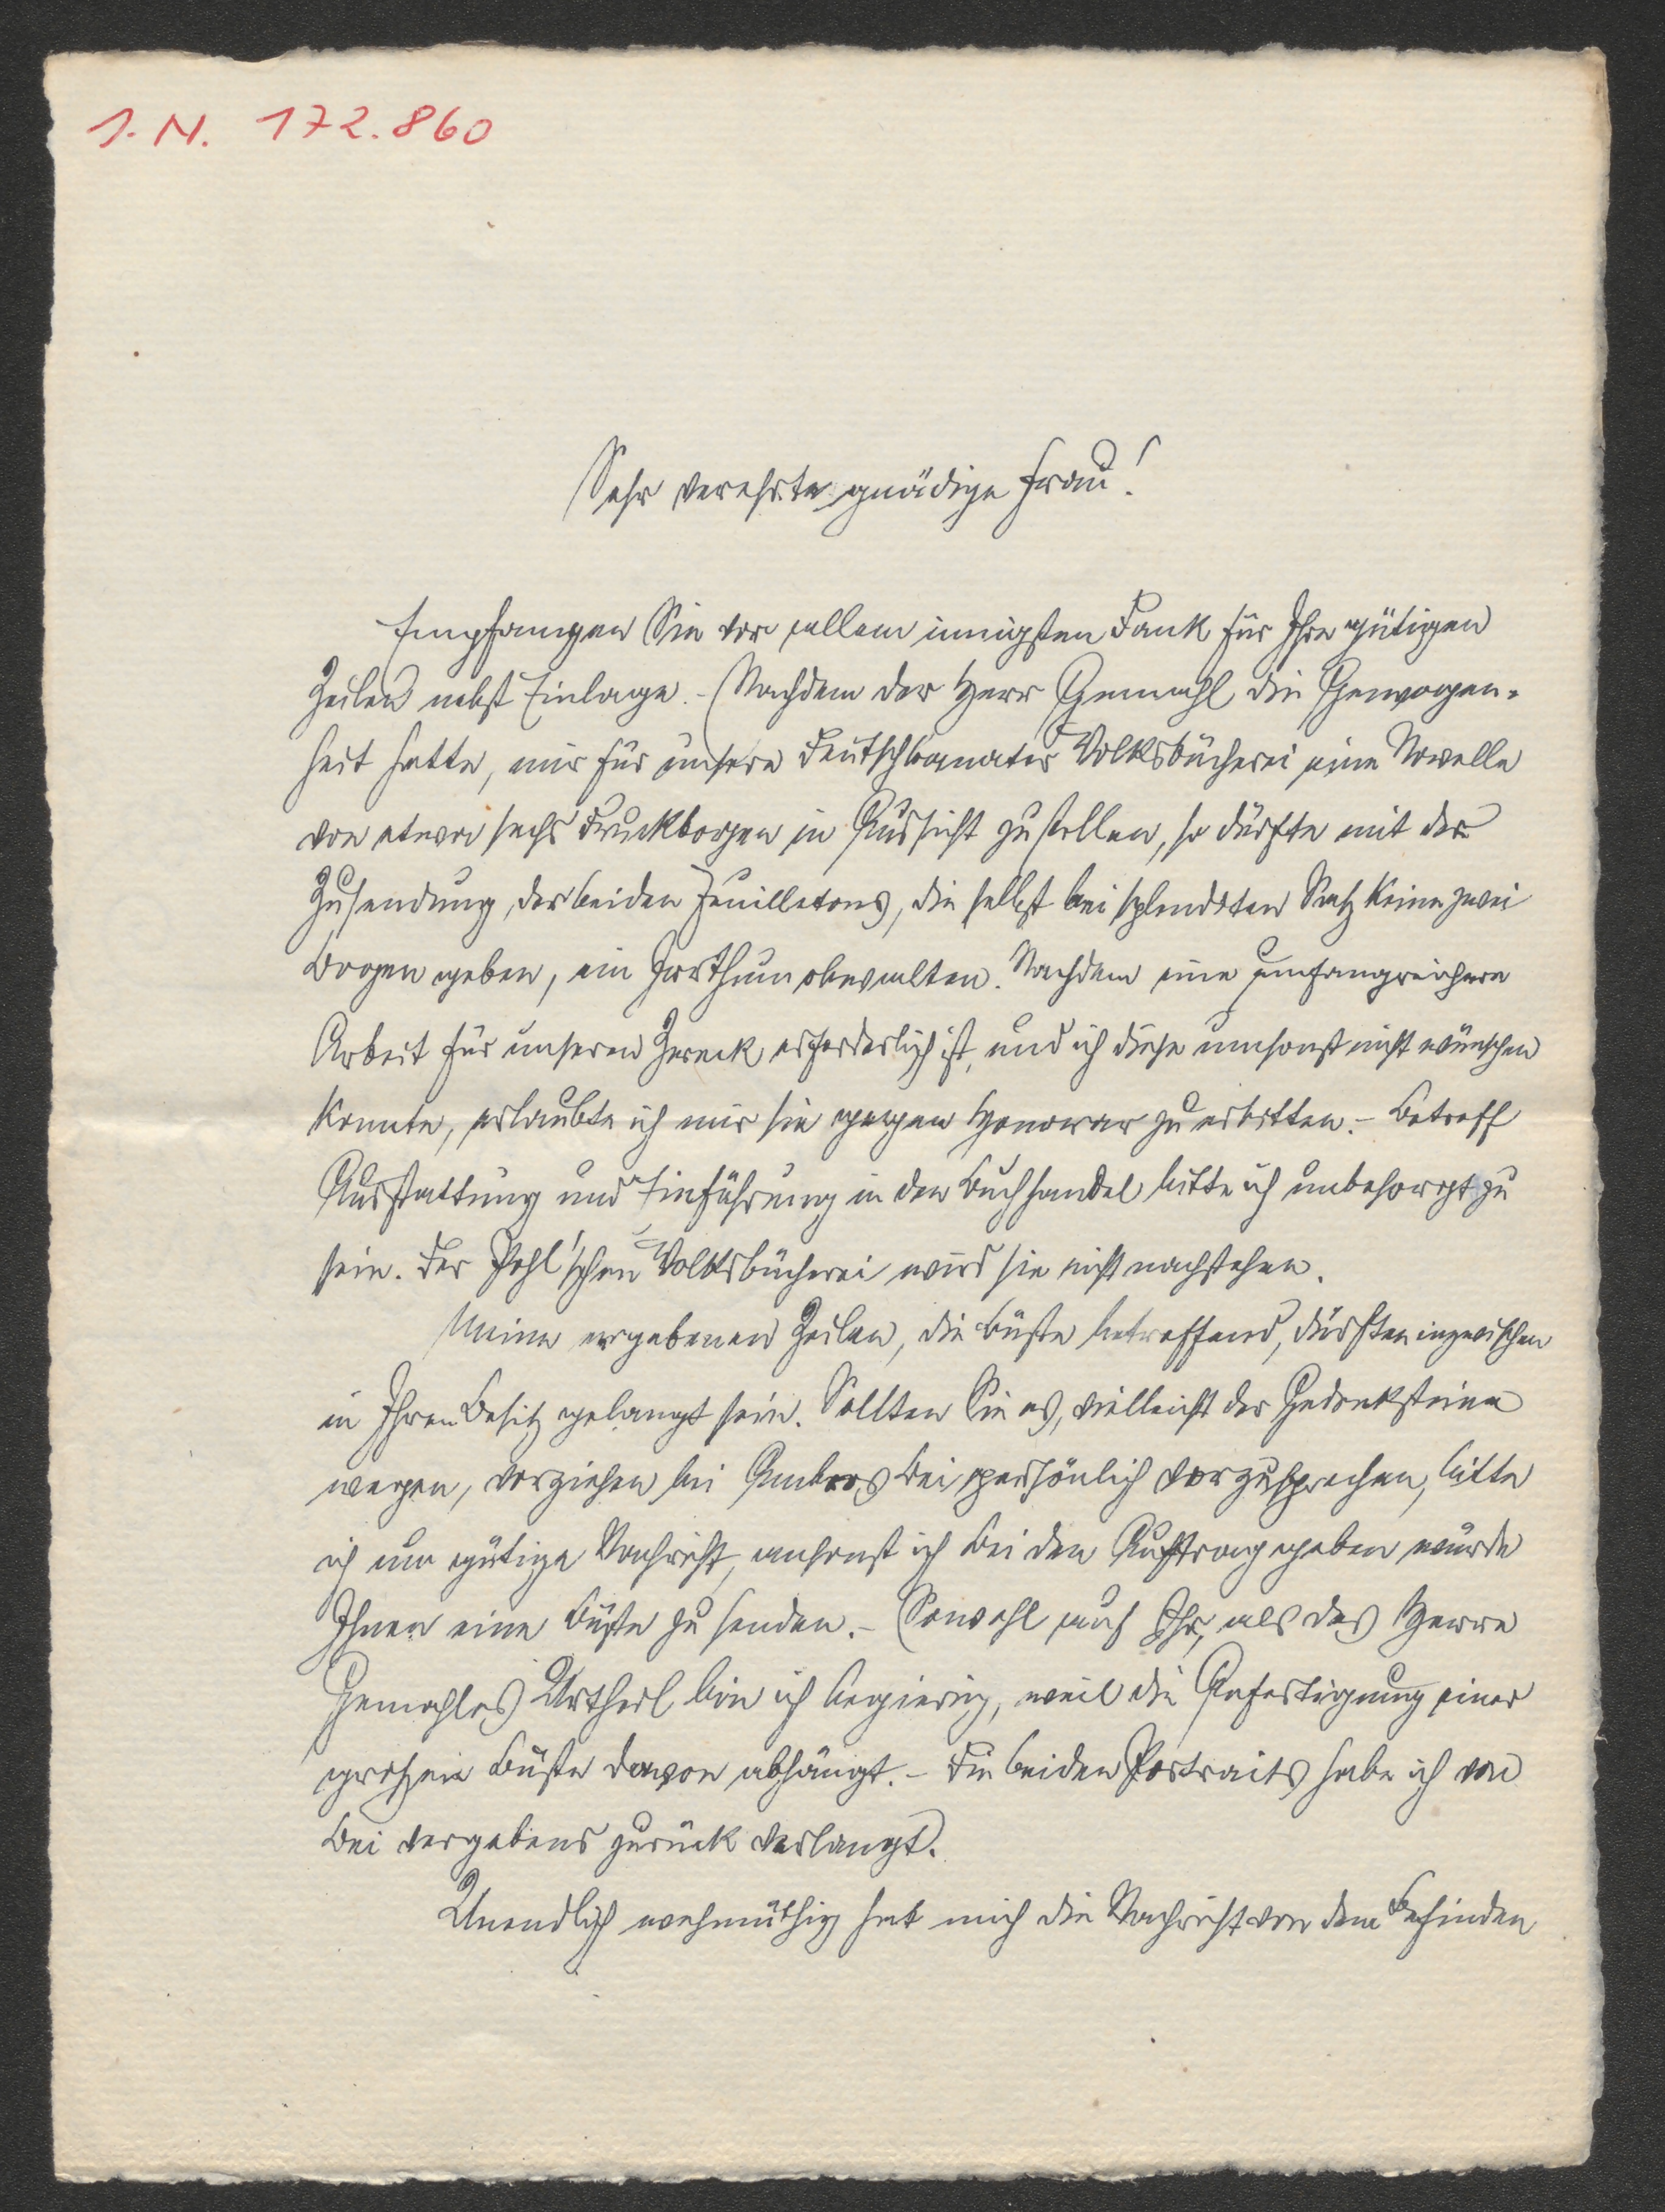 I. N. 172.860
Sehr verehrte gnädige Frau!
Empfangen Sie vor allem innigsten Dank für Ihre gütigen
Zeilen nebst Einlage. – Nachdem der Herr Gemahl die Gewogen-
heit hatte, mir für unsere Deutschbanater Volksbücherei eine Novelle
von etwa sechs Druckbogen in Aussicht zu stellen, so dürfte mit der
Zusendung der beiden Feuilletons, die selbst bei splendsten Satz keine zwei
Bogen geben, ein Irrthum obwalten. Nachdem eine umfangreichere
Arbeit für unseren Zweck erforderlich ist, und ich diese umsonst nicht wünschen
konnte, erlaubte ich mir sie gegen Honorar zu erbitten. – Betreff
Ausstattung und Einführung in den Buchhandel bitte ich unbesorgt zu
sein. Der Pohl'schen Volksbücherei wird sie nicht nachstehen.
Meine ergebenen Zeilen, die Büste betreffend, dürften inzwischen
in Ihren Besitz gelangt sein. Sollten Sie es, vielleicht der Gedenksteine
wegen, vorziehen bei Ambros Bei persönlich vorzusprechen, bitte
ich um gütige Nachricht, ansonst ich Bei den Auftrag geben würde
Ihnen eine Büste zu senden. – Sowohl auf Ihr, als des Herrn
Gemahles Urtheil bin ich begierig, weil die Anfertigung einer
großen Büste davon abhängt. – Die beiden Portraits habe ich von
Bei vergebens zurück verlangt.
Unendlich wehmüthig hat mich die Nachricht von dem Befinden